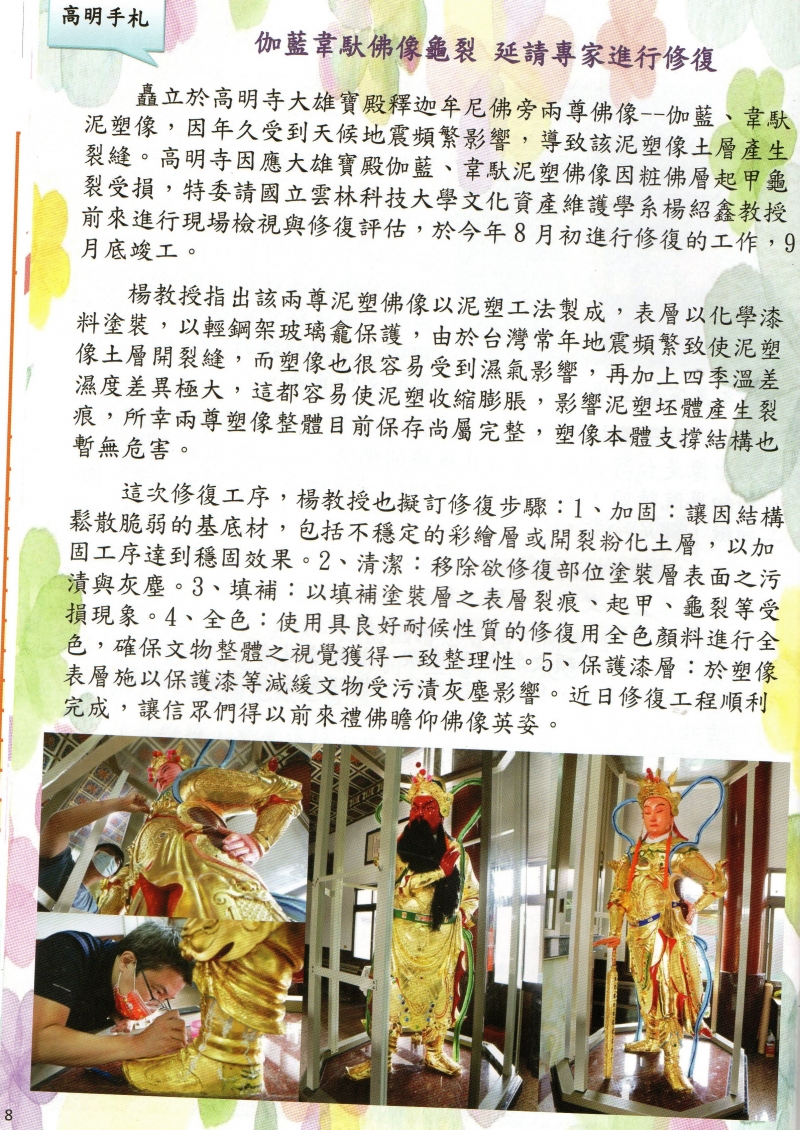 高明手札
伽藍韋馱佛像龜裂 延請專家進行修復
矗立於高明寺大雄寶殿釋迦牟尼佛旁兩尊佛像--伽藍、韋馱
泥塑像，因年久受到天候地震頻繁影響，導致該泥塑像土層產生
裂縫。高明寺因應大雄寶殿伽藍、韋馱泥塑佛像因粧佛層起甲龜
裂受損，特委請國立雲林科技大學文化資產維護學系楊紹鑫教授
前來進行現場檢視與修復評估，於今年8月初進行修復的工作，9
月底竣工。
楊教授指出該兩尊泥塑佛像以泥塑工法製成，表層以化學漆
料塗裝，以輕鋼架玻璃龕保護，由於台灣常年地震頻繁致使泥塑
像土層開裂縫，而塑像也很容易受到濕氣影響，再加上四季溫差
濕度差異極大，這都容易使泥塑收縮膨脹，影響泥塑坯體產生裂
痕，所幸兩尊塑像整體目前保存尚屬完整，塑像本體支撐結構也
暫無危害。
這次修復工序，楊教授也擬訂修復步驟：1、加固：讓因結構
鬆散脆弱的基底材，包括不穩定的彩繪層或開裂粉化土層，以加
固工序達到穩固效果。2、清潔：移除欲修復部位塗裝層表面之污
漬與灰塵。3、填補：以填補塗裝層之表層裂痕、起甲、龜裂等受
損現象。4、全色：使用具良好耐候性質的修復用全色顏料進行全
色，確保文物整體之視覺獲得一致整理性。5、保護漆層：於塑像
表層施以保護漆等減緩文物受污漬灰塵影響。近日修復工程順利
完成，讓信眾們得以前來禮佛瞻仰佛像英姿。
8